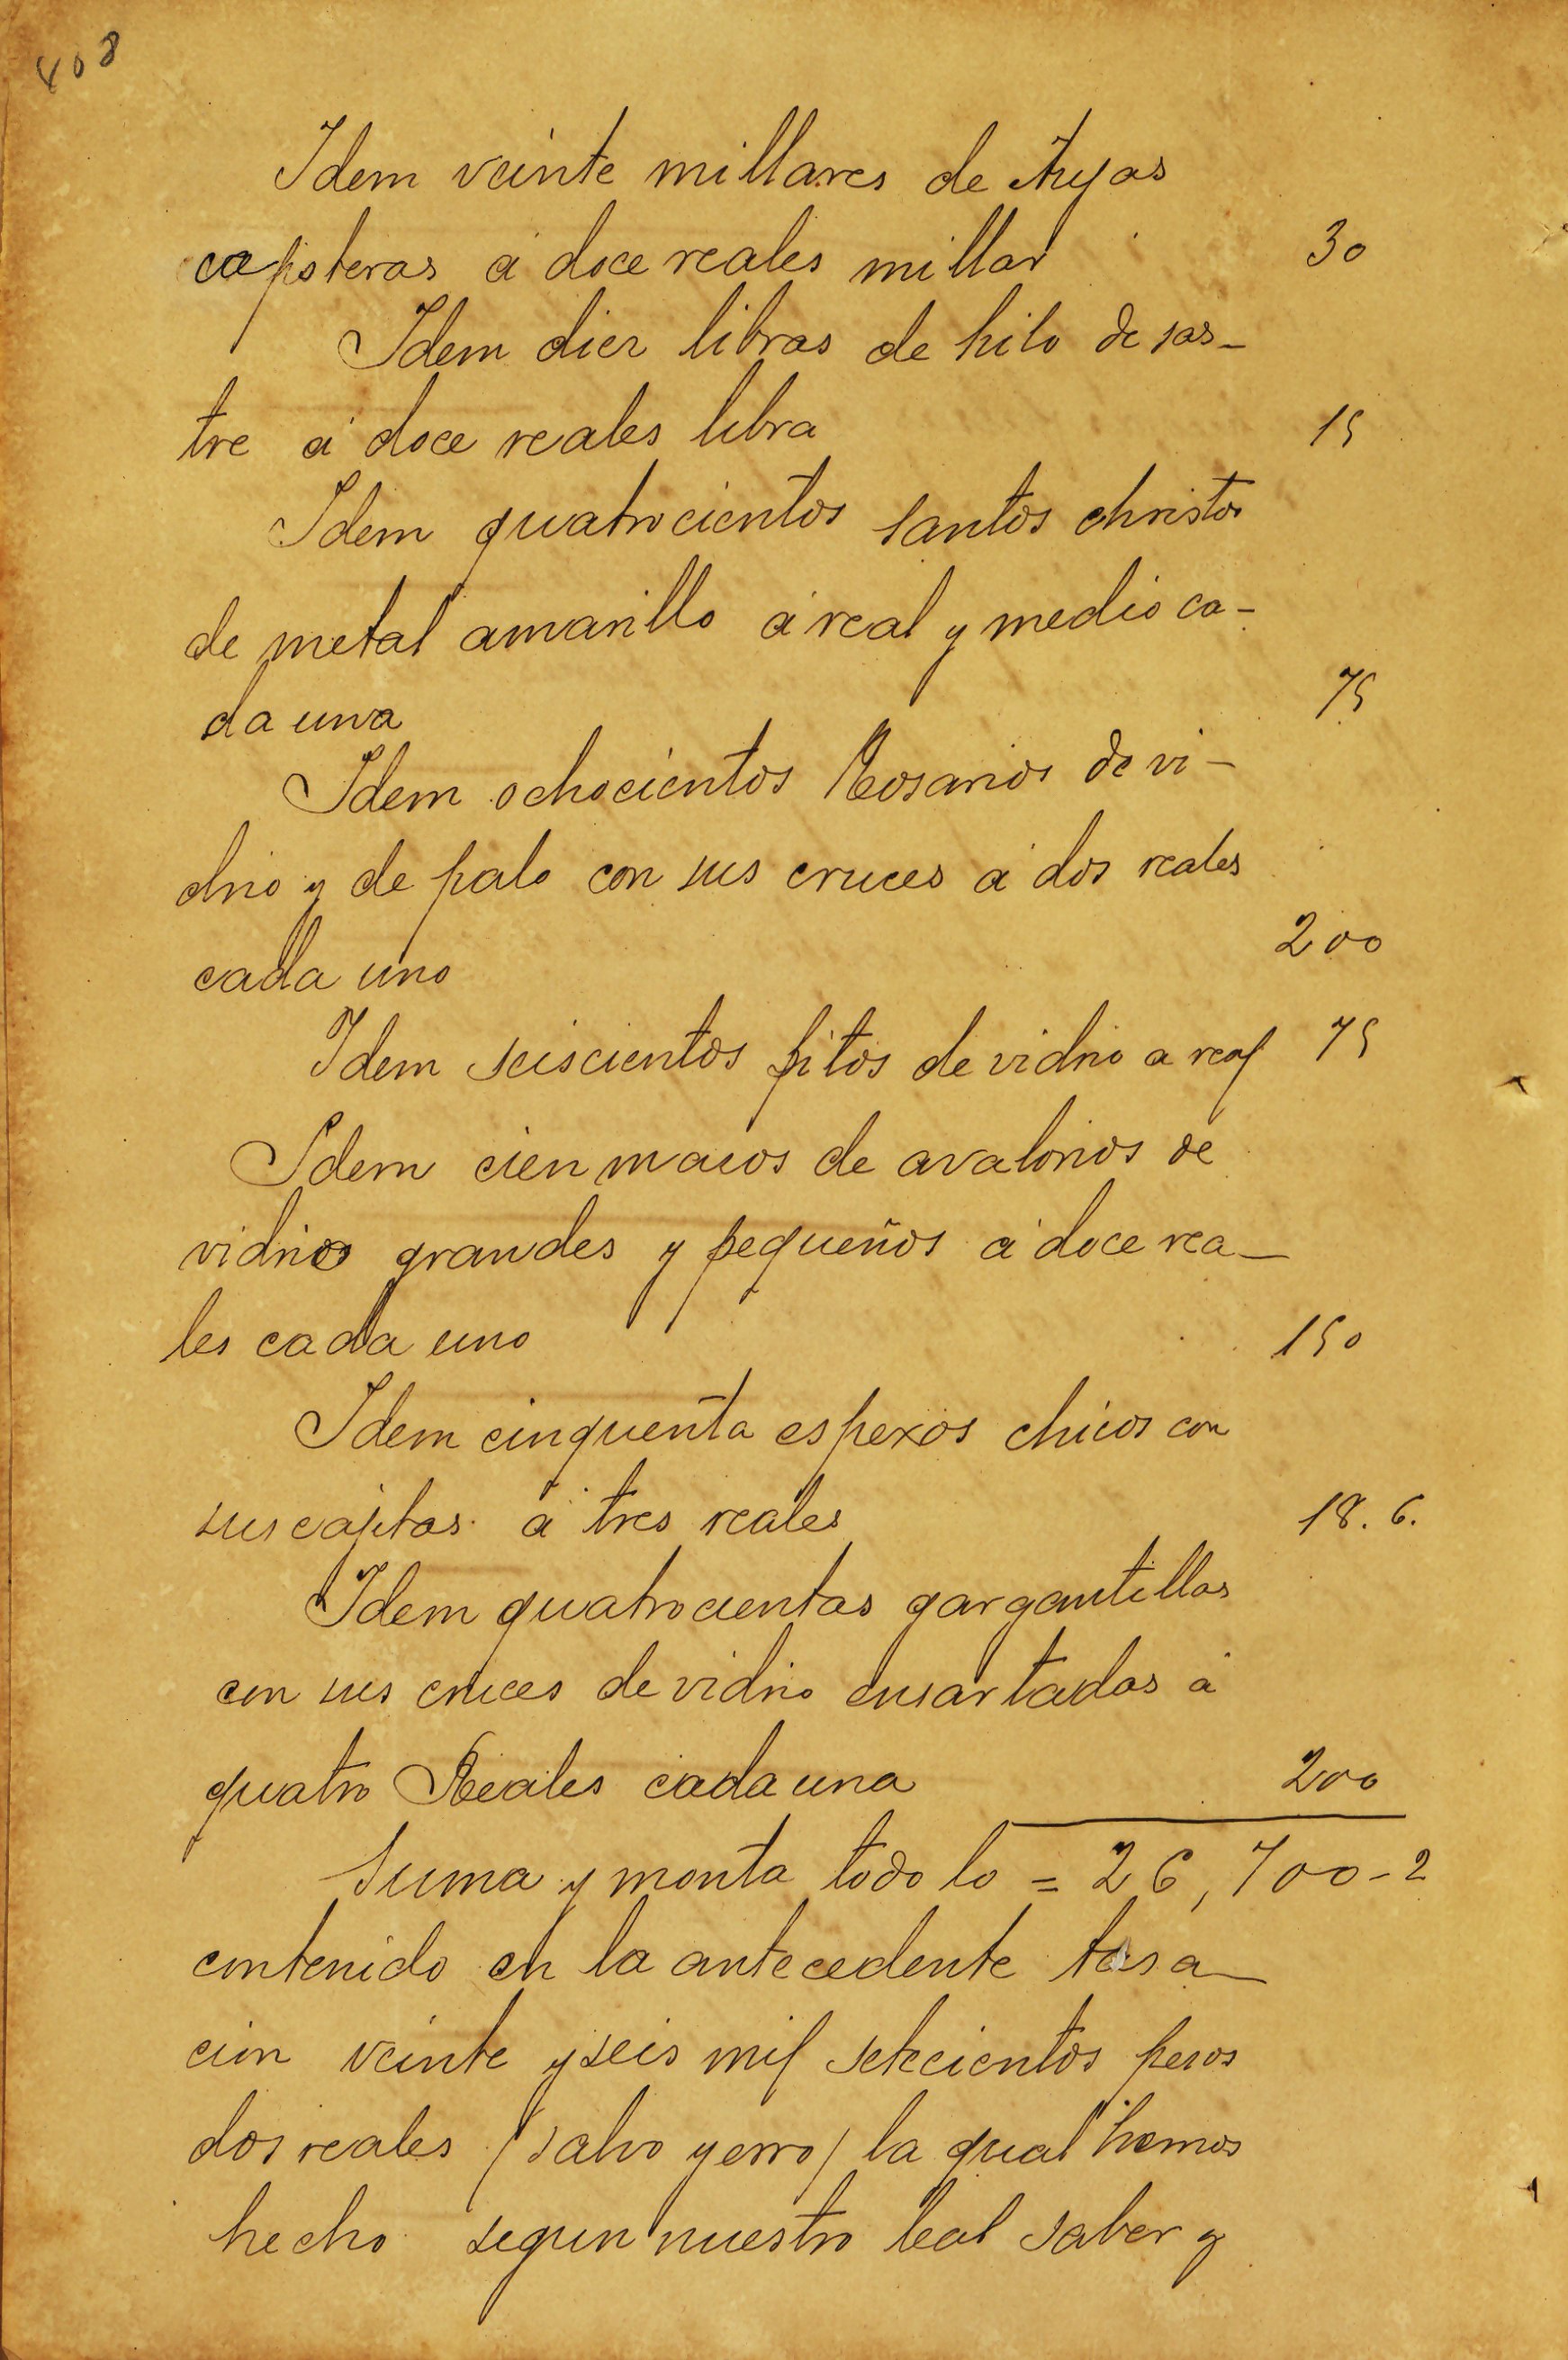 408
Idem veinte millares de Auyas
capoteras á doce reales millar 30
Idem diez libras de hilo de sas-
tre á doce reales libra 15
Idem quatrocientos santos christos
de metal amarillo á real y medio ca-
da uno 75
Idem ochocientos Rosarios de vi-
drio y de palo con sus cruces á dos reales
cada uno 200
Idem seiscientos pitos de vidrio a real 75
Idem cien macos de avalorios de
vidrios grandes y pequeños á doce rea-
les cada uno 150
Idem cinquenta espexos chicos con
sus cajitas á tres reales 18. 6.
Idem quatrocientas gargantillas
con sus cruces de vidrio ensartadas á
quatro Reales cada una 200
Suma y monta todo lo = 26,700-2
contenido en la antecedente tasa-
cion veinte y seis mil setecientos pesos
dos reales (salvo yerro) la qual hemos
hecho segun nuestro leal saber y